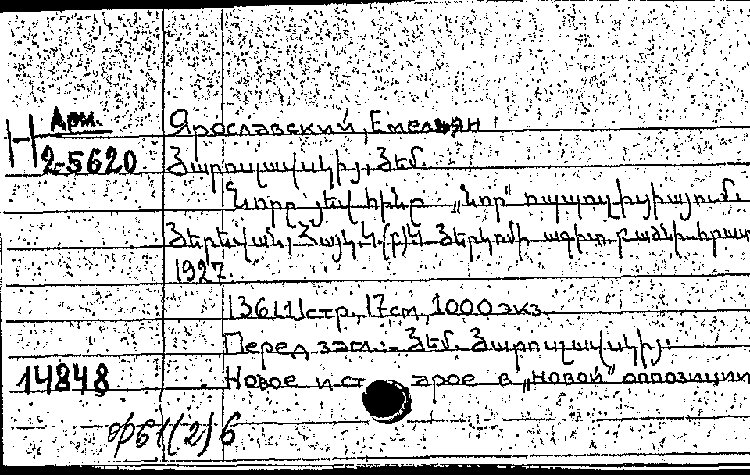 Арм. Ярославский, Емельян
Н 2-5620 Յարոսլավսկիյ, Յեմ.
Նորը յեվ հինը „նոր" ոպպոզիցիայում.
Յերեվան, Հայկ. Կ.(բ)Կ Յերկոմի ագիտ. բաժնի հրատ
1927.
136[1]стр., 17см, 1000 экз.
Перед загл.: Յեմ. Յարոսլավսկիյ.
14848 Новое и старое в „новой" оппозиции
ф61(2)6